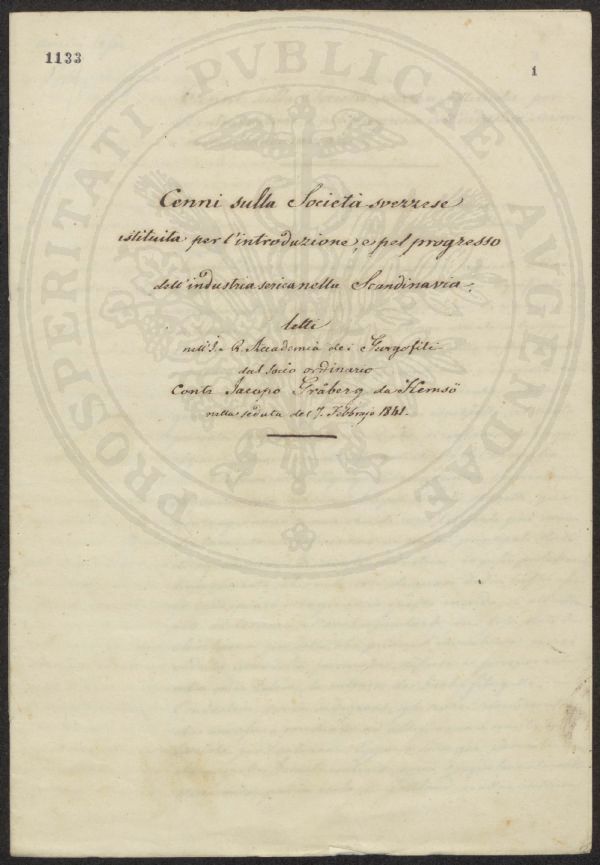 1133
1
PROSPERITATI PVBLICAE AVGENDAE
Cenni sulla Società svezzese
istituita per l'introduzione, e pel progresso
dell'industria serica nella Scandinavia.
letti
nell'I. e R. Accademia dei Gergofili
dal socio ordinario
Conte Jacopo Gråberg da Hemsö
nella seduta del 7. Febbrajo 1841.